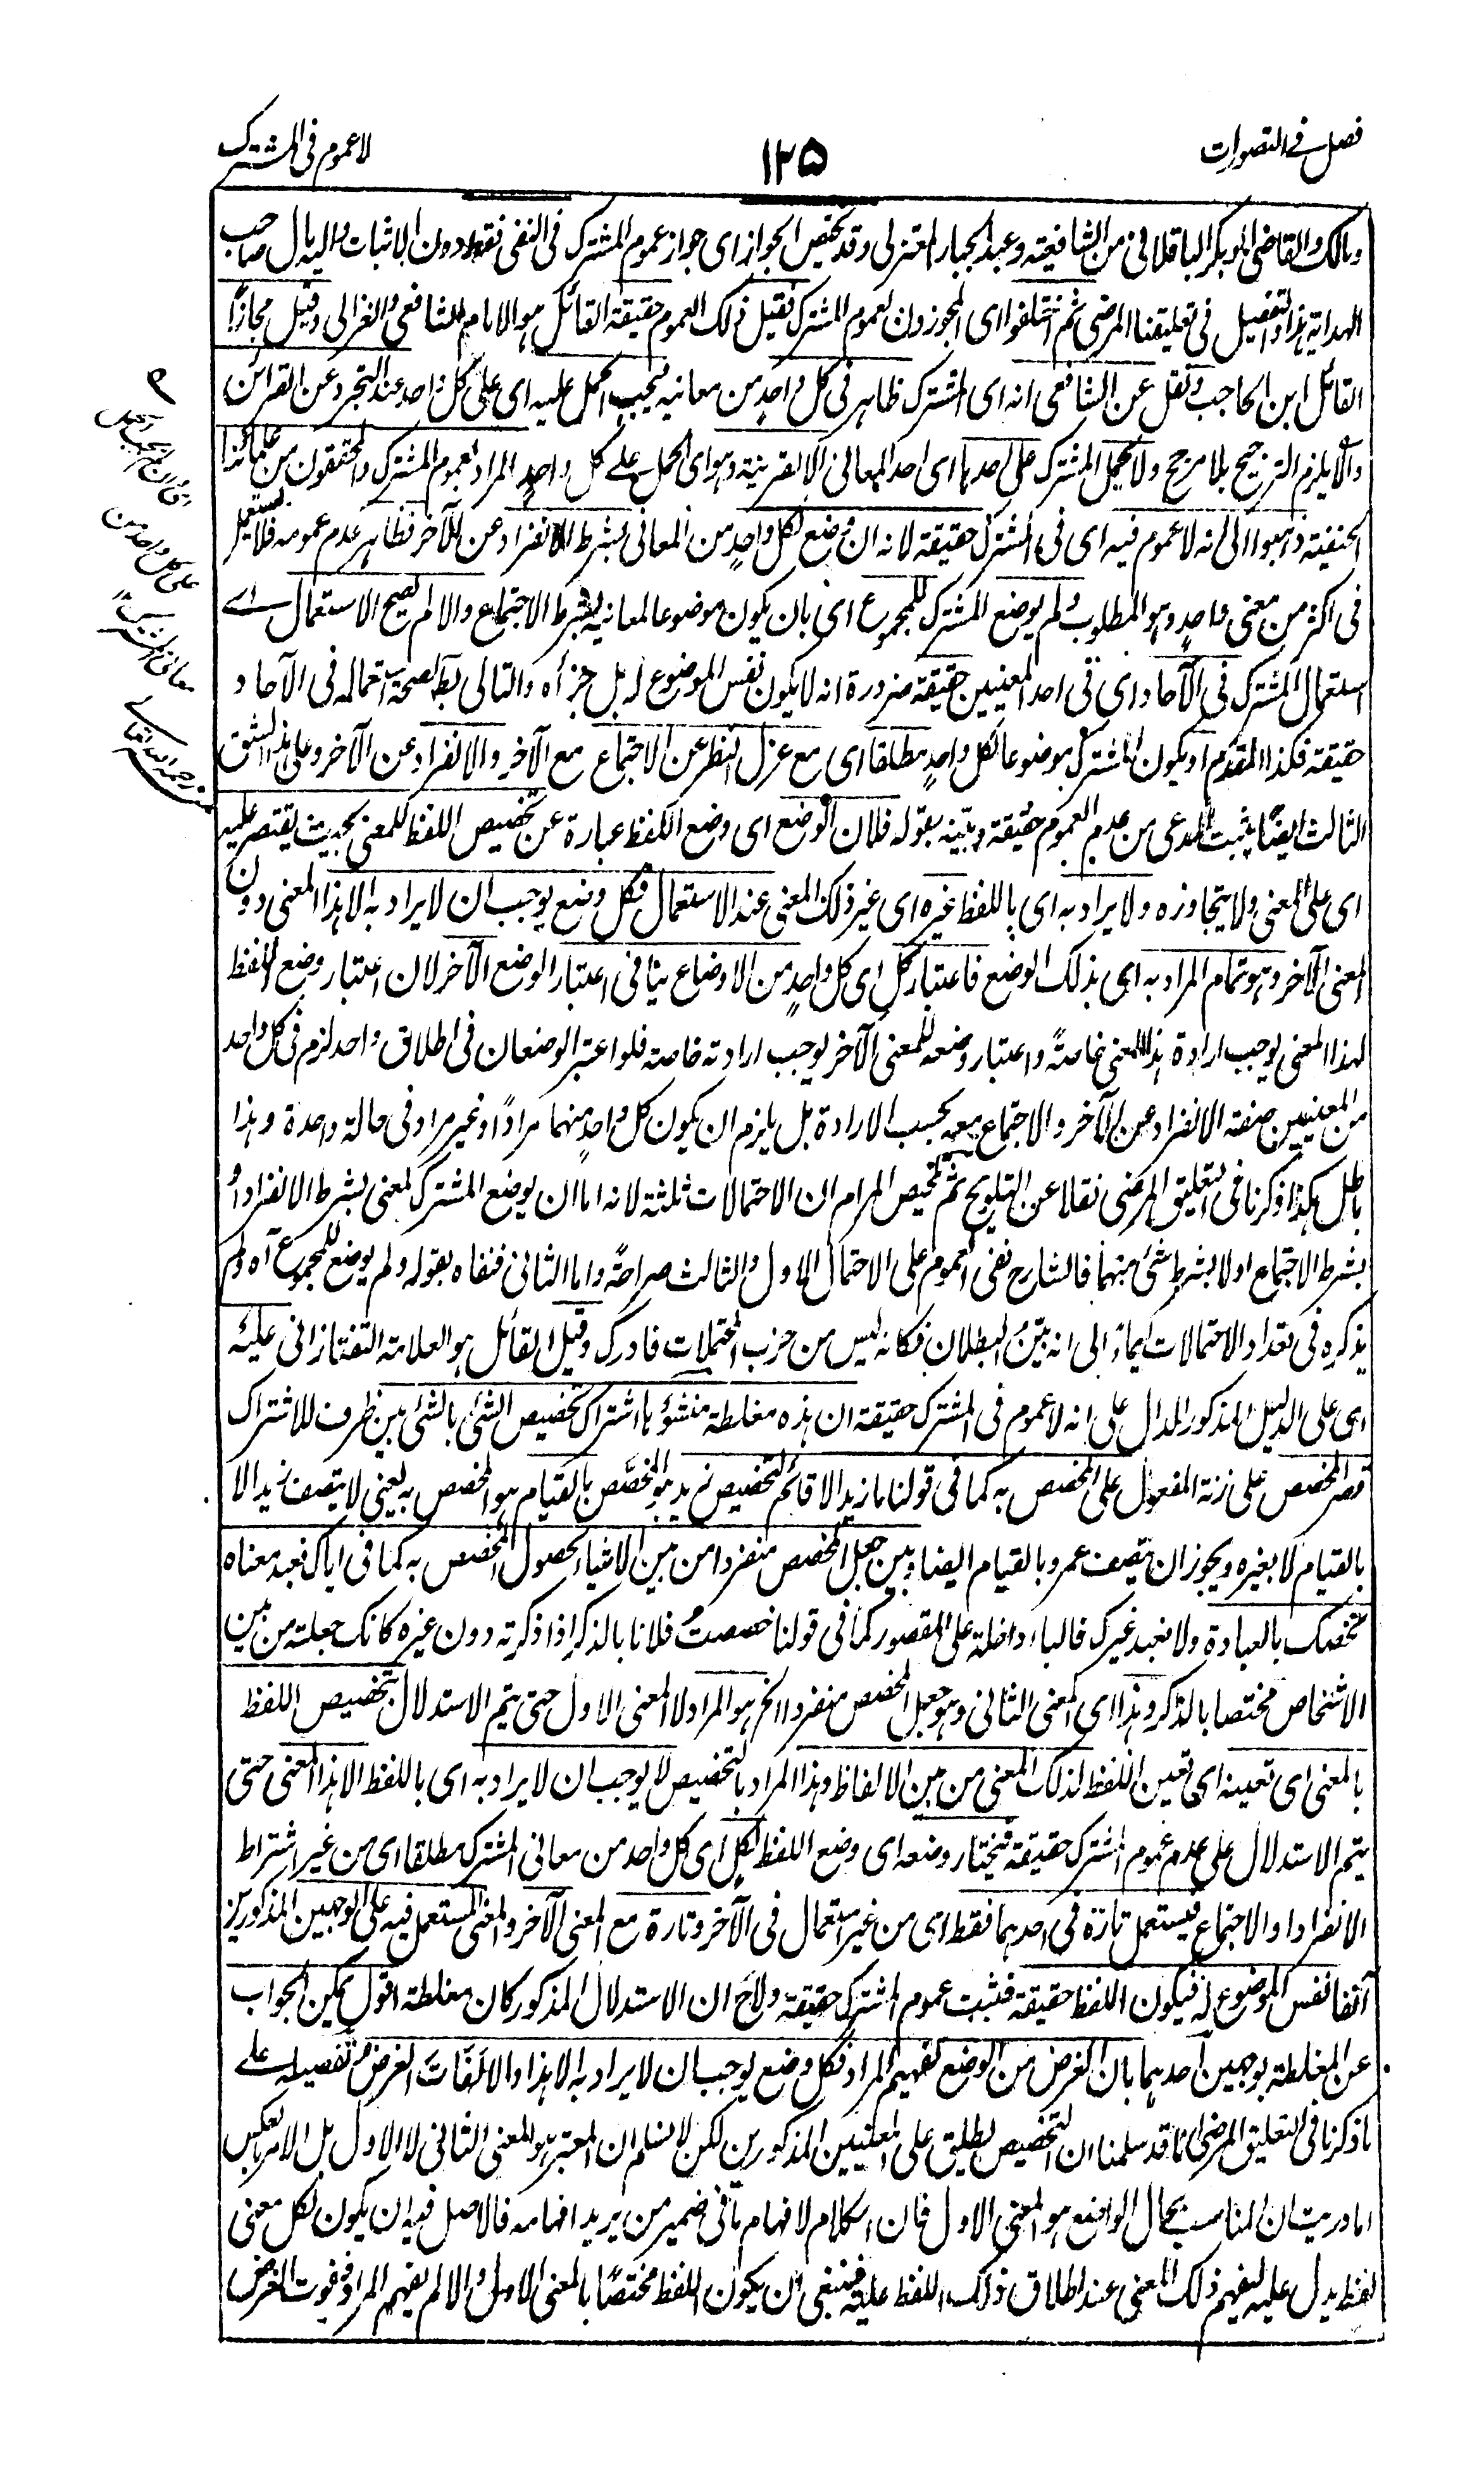 فصل في التصورات
١٢٥
لا عموم في المشترك
ومالك والقاضي ابو بكر الباقلاني من الشافعية وعبد الجبار المعتزلي وقد يختص الجواز اى جواز عموم المشترك في النفي فقط دون الاثبات واليه مال صاحب
الهداية هذا والتفصيل في تعليقنا المرضي ثم اختلفوا اى المجوزون لعموم المشترك فقيل ذلك العموم حقيقة القائل هو الامام الشافعي والغزالي وقيل مجازًا
القائل ابن الحاجب ونقل عن الشافعي انه اى المشترك ظاهر في كل واحدٍ من معانيه فيجب الحمل عليه اى على كل واحد عند التجرد عن القرائن
والّا يلزم الترجيح بلا مرجح ولا يحمل المشترك على احدها اى احد المعاني الّا بقرينة وهو اى الحمل على كل واحدٍ المراد بعموم المشترك والمحققون من علمائنا
الحنفية ذهبوا الى انه لا عموم فيه اى في المشترك حقيقة لانه ان وضع لكل واحدٍ من المعاني بشرط الانفراد عن الآخر فظاهر عدم عمومه فلا يستعمل
في اكثر من معنى واحدٍ وهو المطلوب ولم يوضع المشترك للمجموع اى بان يكون موضوعا لمعانيه بشرط الاجتماع والا لم يصح الاستعمال اے
استعمال المشترك في الآحاد اى في احد المعنيين حقيقة ضرورة انه لا يكون نفس الموضوع له بل جزأه والتالي بط لصحة استعماله في الآحاد
حقيقة فكذا المقدم او يكون المشترك موضوعا لكل واحدٍ مطلقا اى مع عزل النظر عن الاجتماع مع الآخر والانفراد عن الآخر وعلى هذا الشق
الثالث ايضًا يثبت المدعى من عدم العموم حقيقة وبيّنه بقوله فلان الوضع اى وضع اللفظ عبارة عن تخصيص اللفظ للمعنى بحيث يقتصر عليه
اى على المعنى ولا يتجاوزه ولا يراد به اى باللفظ غيره اى غير ذلك المعنى عند الاستعمال فكل وضع يوجب ان لا يراد به الا هذا المعنى دون
المعنى الآخر وهو تمام المراد به اى بذلك الوضع فاعتبار كلٍ اى كل واحدٍ من الاوضاع ينافي اعتبار الوضع الآخر لان اعتبار وضع اللفظ
لهذا المعنى يوجب ارادة هذا المعنى خاصةً واعتبار وضعه للمعنى الآخر يوجب ارادته خاصة فلو اعتبر الوضعان في اطلاق واحد لزم في كل واحد
من المعنيين صفة الانفراد عن الآخر والاجتماع معه بحسب الارادة بل يلزم ان يكون كل واحدٍ منهما مرادًا وغير مراد في حالة واحدة وهذا
باطل هكذا ذكرنا في التعليق المرضي نقلا عن التلويح ثم تلخيص المرام ان الاحتمالات ثلثة لانه اما ان يوضع المشترك لمعنى بشرط الانفراد او
بشرط الاجتماع اولا بشرط شئ منهما فالشارح نفى العموم على الاحتمال الاول والثالث صراحةً واما الثاني فنفاه بقوله ولم يوضع للمجموع آه ولم
يذكره في تعداد الاحتمالات ايماءً الى انه بيّن البطلان فكانه ليس من حزب المحتملات فادرك وقيل القائل هو العلامة التفتازاني عليه
اى على الدليل المذكور الدال على انه لا عموم في المشترك حقيقة ان هذه مغلطة منشؤها اشتراك تخصيص الشئ بالشئ بين ظرف للاشتراك
قصر المخصص على زنة المفعول على المخصص به كما في قولنا ما زيد الا قائم لتخصيص زيد هو المخصَّص بالقيام هو المخصص به يعني لا يتصف زيد الا
بالقيام لا بغيره ويجوز ان يتصف عمرو بالقيام ايضا وبين جعل المخصص منفردا من بين الاشياء بحصول المخصص به كما في اياك نعبد معناه
نخصك بالعبادة ولا نعبد غيرك فالباء داخلة على المقصور كما في قولنا خصصتُ فلانا بالذكر اذا ذكرته دون غيره كانك جعلته من بين
الاشخاص مختصا بالذكر وهذا اى المعنى الثاني وهو جعل المخصص منفردا الخ هو المراد لا المعنى الاول حتى يتم الاستدلال بتخصيص اللفظ
بالمعنى اى تعينه اى تعين اللفظ لذلك المعنى من بين الالفاظ وهذا المراد بالتخصيص لا يوجب ان لا يراد به اى باللفظ الا هذا المعنى حتى
يتم الاستدلال على عدم عموم المشترك حقيقة فيختار وضعه اى وضع اللفظ لكلٍ اى كل واحد من معاني المشترك مطلقا اى من غير اشتراط
الانفراد او الاجتماع فيستعمل تارة في احدهما فقط اى من غير استعمال في الآخر وتارة مع المعنى الآخر والمعنى المستعمل فيه على الوجهين المذكورين
آنفا نفس الموضوع له فيكون اللفظ حقيقة فثبت عموم المشترك حقيقة ولاح ان الاستدلال المذكور كان مغلطة اقول يمكن الجواب
عن المغلطة بوجهين احدهما بان الغرض من الوضع تفهيم المراد فكل وضع يوجب ان لا يراد به الا هذا والا لَفَاتَ الغرض وتفصيله على
ما ذكرنا في التعليق المرضي انا قد سلمنا ان التخصيص يطلق على المعنيين المذكورين لكن لا نسلم ان المعتبر هو المعنى الثاني لا الاول بل الامر بالعكس
اما دريت ان المناسب بحال الواضع هو المعنى الاول فان الكلام لافهام ما في ضمير من يريد افهامه فالاصل فيه ان يكون لكل معنى
لفظ يدل عليه ليفهم ذلك المعنى عند اطلاق ذلك اللفظ عليه فينبغي ان يكون اللفظ مختصًا بالمعنى الاول والا لم يفهم المراد ففوت الغرض
على كل واحد من
معاني المشترك ١٢
منه رحمه الله تعالے